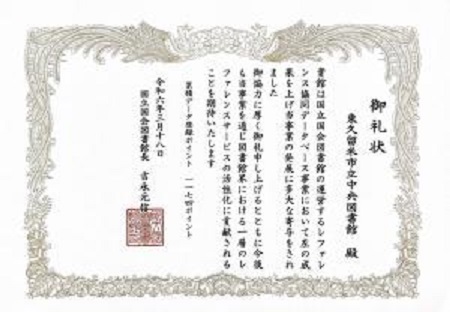 御礼状
東久留米市立中央図書館 殿
貴館は国立国会図書館の運営するレファレ
ンス協同データベース事業において左の成
果を上げ当事業の発展に多大な寄与をされ
ました
御協力に厚く御礼申し上げるとともに今後
も当事業を通じ図書館界における一層のレ
ファレンスサービスの活性化に貢献される
ことを期待いたします
累積データ登録ポイント 一一七四ポイント
令和六年三月十八日
国立国会図書館長 吉永元信